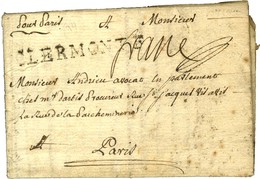 Pour Paris A Monsieur
CLERMONT franc
Monsieur Andrieu avocat en parlement
chez mr Procureur rue St Jacques vis avis
la Rue de la Parcheminerie
A Paris